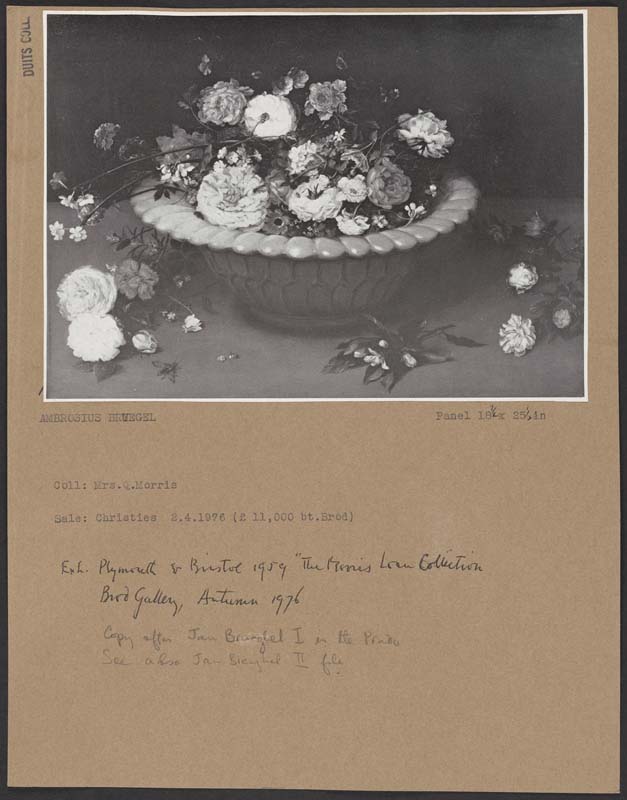 DUITS COLL
AMBROSIUS BRUEGEL
Panel 18½ x 25½in
Coll: Mrs.Q.Morris
Sale: Christies 2.4.1976 (£ 11,000 bt.Brod)
Exh. Plymouth & Bristol 1959 "The Morris Loan Collection
Brod Gallery, Autumn 1976
Copy after Jan Brueghel I in the Prado
See also Jan Brueghel II file